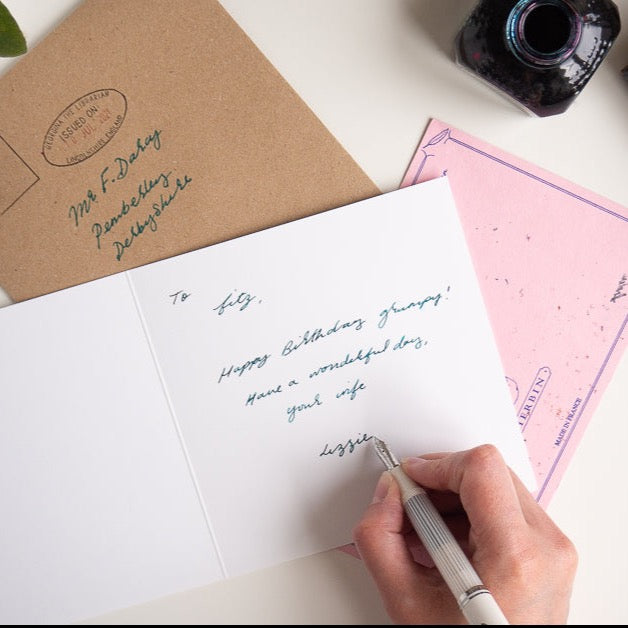 GEORGINA THE LIBRARIAN
ISSUED ON
JUL
LINCOLNSHIRE, ENGLAND
Mr F. Darcy
Pemberley
Derbyshire
To Fitz,
Happy Birthday grumpy!
Have a wonderful day,
your wife
Lizzie
HERBIN
MADE IN FRANCE